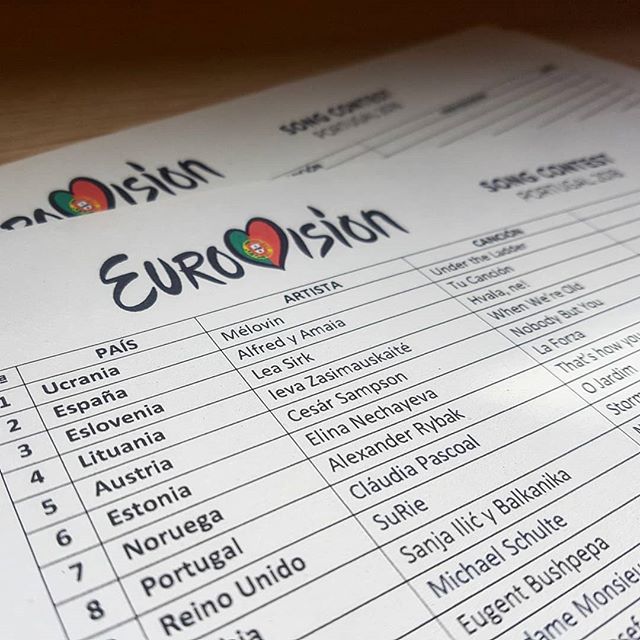 SONG CONTEST
PORTUGAL 2018
VISION
EUROVISION
SONG CONTEST
PORTUGAL 2018
PAÍS ARTISTA CANCIÓN
1 Ucrania Mélovin Under the Ladder
2 España Alfred y Amaia Tu Canción
3 Eslovenia Lea Sirk Hvala, ne!
4 Lituania Ieva Zasimauskaité When We're Old
5 Austria Cesár Sampson Nobody But You
6 Estonia Elina Nechayeva La Forza
7 Noruega Alexander Rybak That's how you
8 Portugal Cláudia Pascoal O Jardim
Reino Unido SuRie Storm
Sanja Ilić y Balkanika
Michael Schulte
Eugent Bushpepa
Madame Monsieur